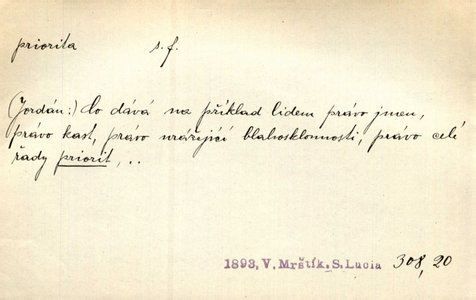 priorita s. f.
(Jordán:) Co dává na příklad lidem právo jmen,
právo kast, právo urážející blahosklonnosti, právo celé
řady priorit, ..
1893, V. Mrštík, S. Lucia 308, 20